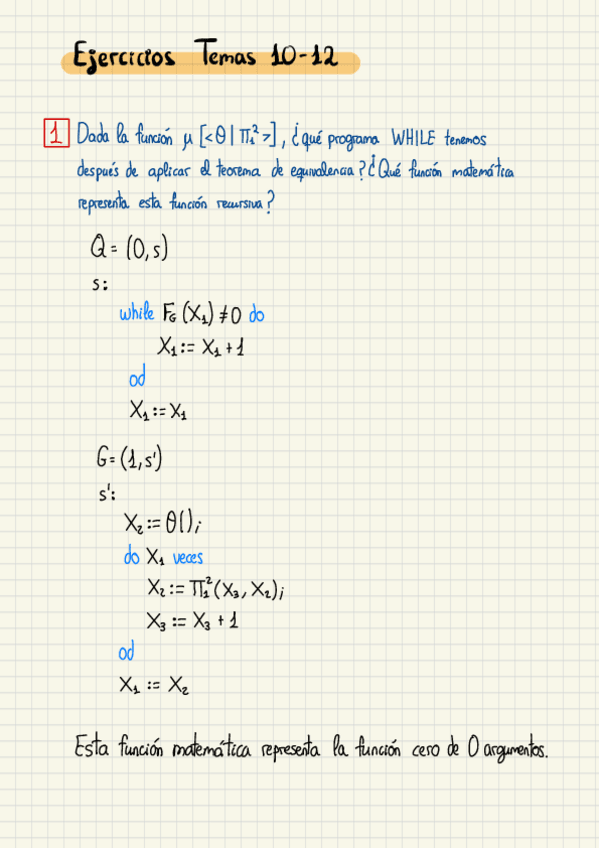 Ejercicios Temas 10-12
1 Dada la función μ [<θ | π₁²>], ¿qué programa WHILE tenemos
después de aplicar el teorema de equivalencia? ¿Qué función matemática
representa esta función recursiva?
Q = (0, s)
s:
while F_G (X₁) ≠ 0 do
X₁ := X₁ + 1
od
X₁ := X₁
G = (1, s')
s':
X₂ := θ();
do X₁ veces
X₂ := π₁² (X₃, X₂);
X₃ := X₃ + 1
od
X₁ := X₂
Esta función matemática representa la función cero de 0 argumentos.